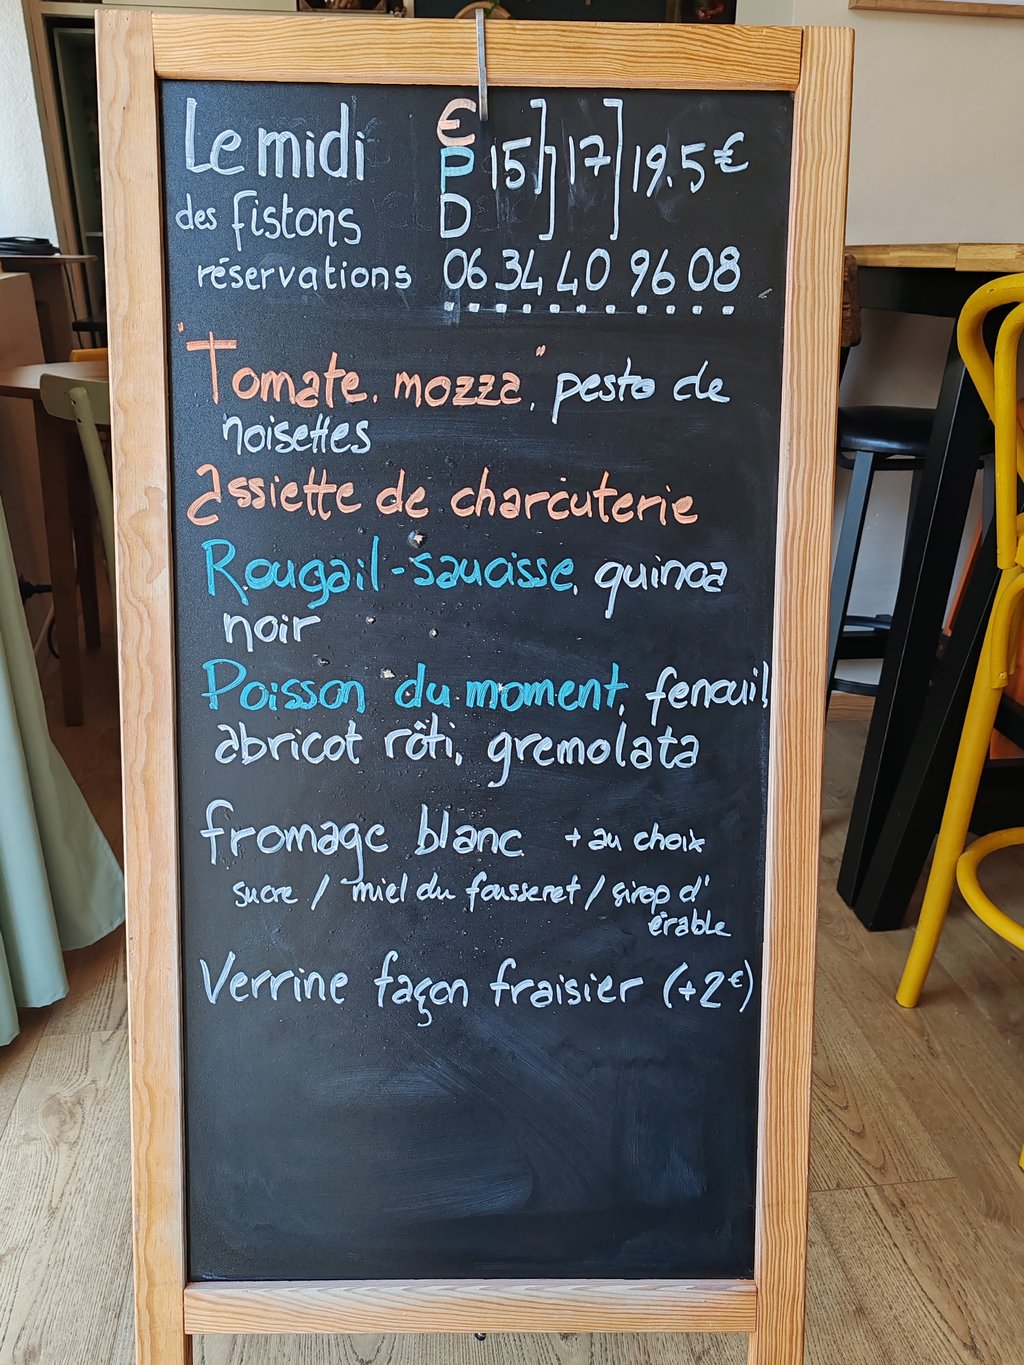 Le midi
des fistons
E
P
D
15 17 19.5€
réservations 06 34 40 96 08
"Tomate, mozza", pesto de
noisettes
Assiette de charcuterie
Rougail-saucisse, quinoa
noir
Poisson du moment, fenouil
abricot rôti, gremolata
fromage blanc + au choix
sucre / miel du fousseret / sirop d'
érable
Verrine façon fraisier (+2€)